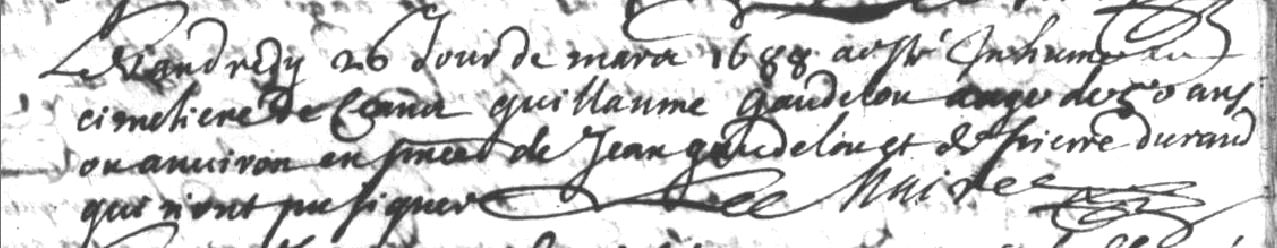 Le Vandredy 26 Jour de mars 1688 a esté Inhumé au
cimetiere de guillaume gaudelou aagé de 50 ans
ou anuiron en pnce de Jean gaudelou et de pierre durand
qui n'ont pu signer